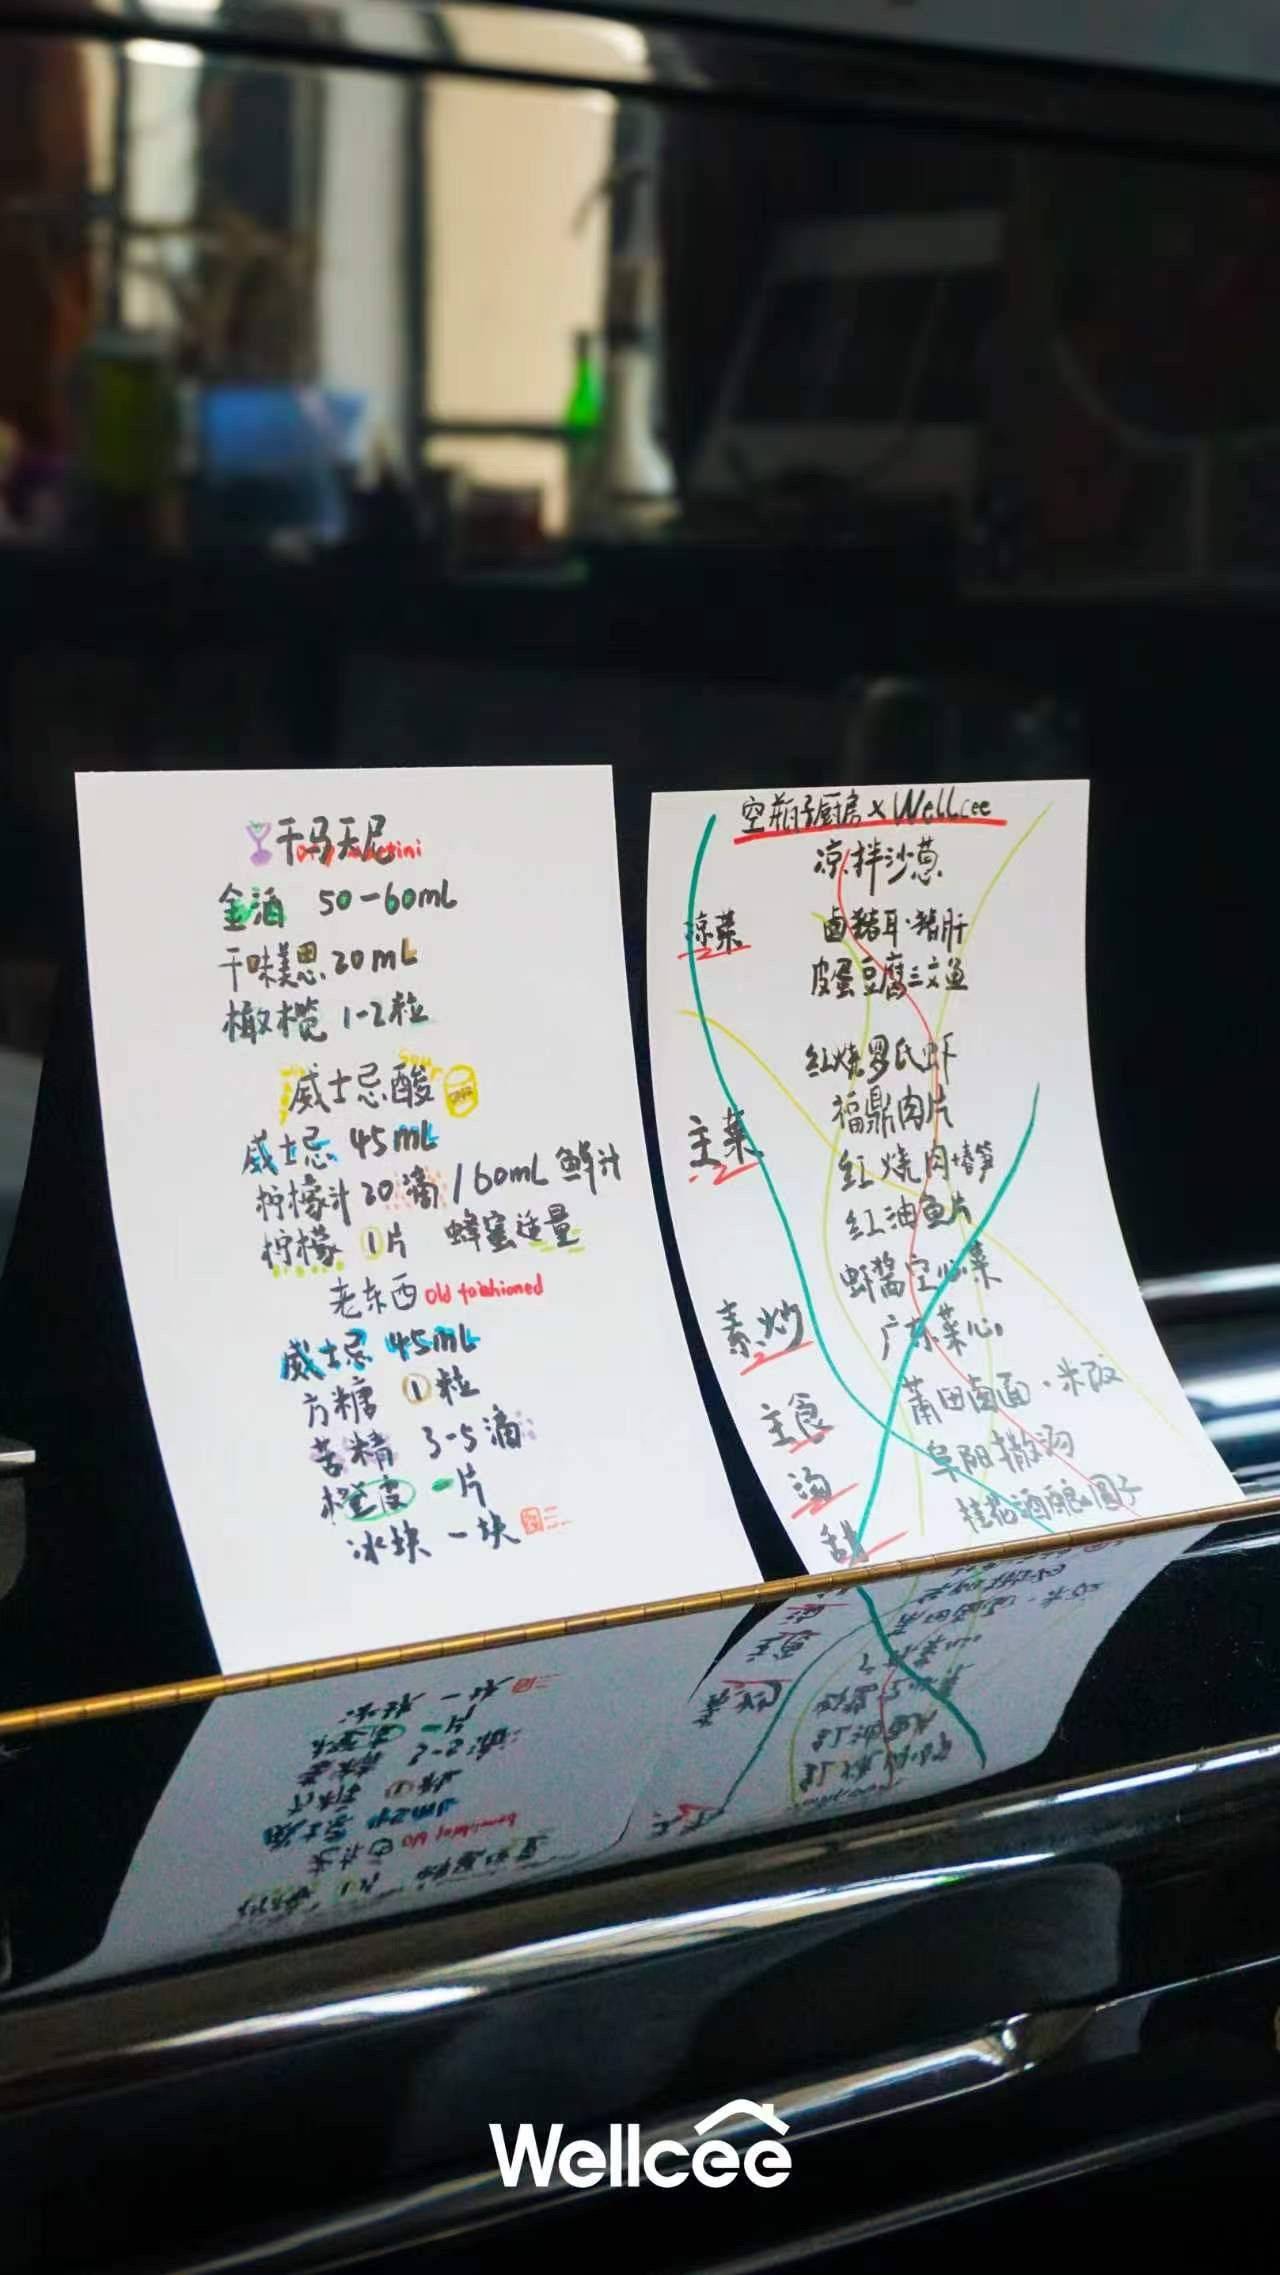 干马天尼
金酒 50-60mL
干味美思 20mL
橄榄 1-2粒
威士忌酸
威士忌 45mL
柠檬汁 20滴 / 60mL 鲜汁
柠檬 1片 蜂蜜适量
老东西 Old fashioned
威士忌 45mL
方糖 1粒
苦精 3-5滴
橙皮 一片
冰块 一块
空瓶子厨房 x Wellcee
凉拌沙葱
凉菜 卤猪耳·猪肝
皮蛋豆腐三文鱼
红烧罗氏虾
福鼎肉片
主菜 红烧肉春笋
红油鱼片
虾酱空心菜
素炒 广东菜心
主食 莆田卤面·米饭
汤 阜阳撒汤
甜 桂花酒酿圆子
Wellcee